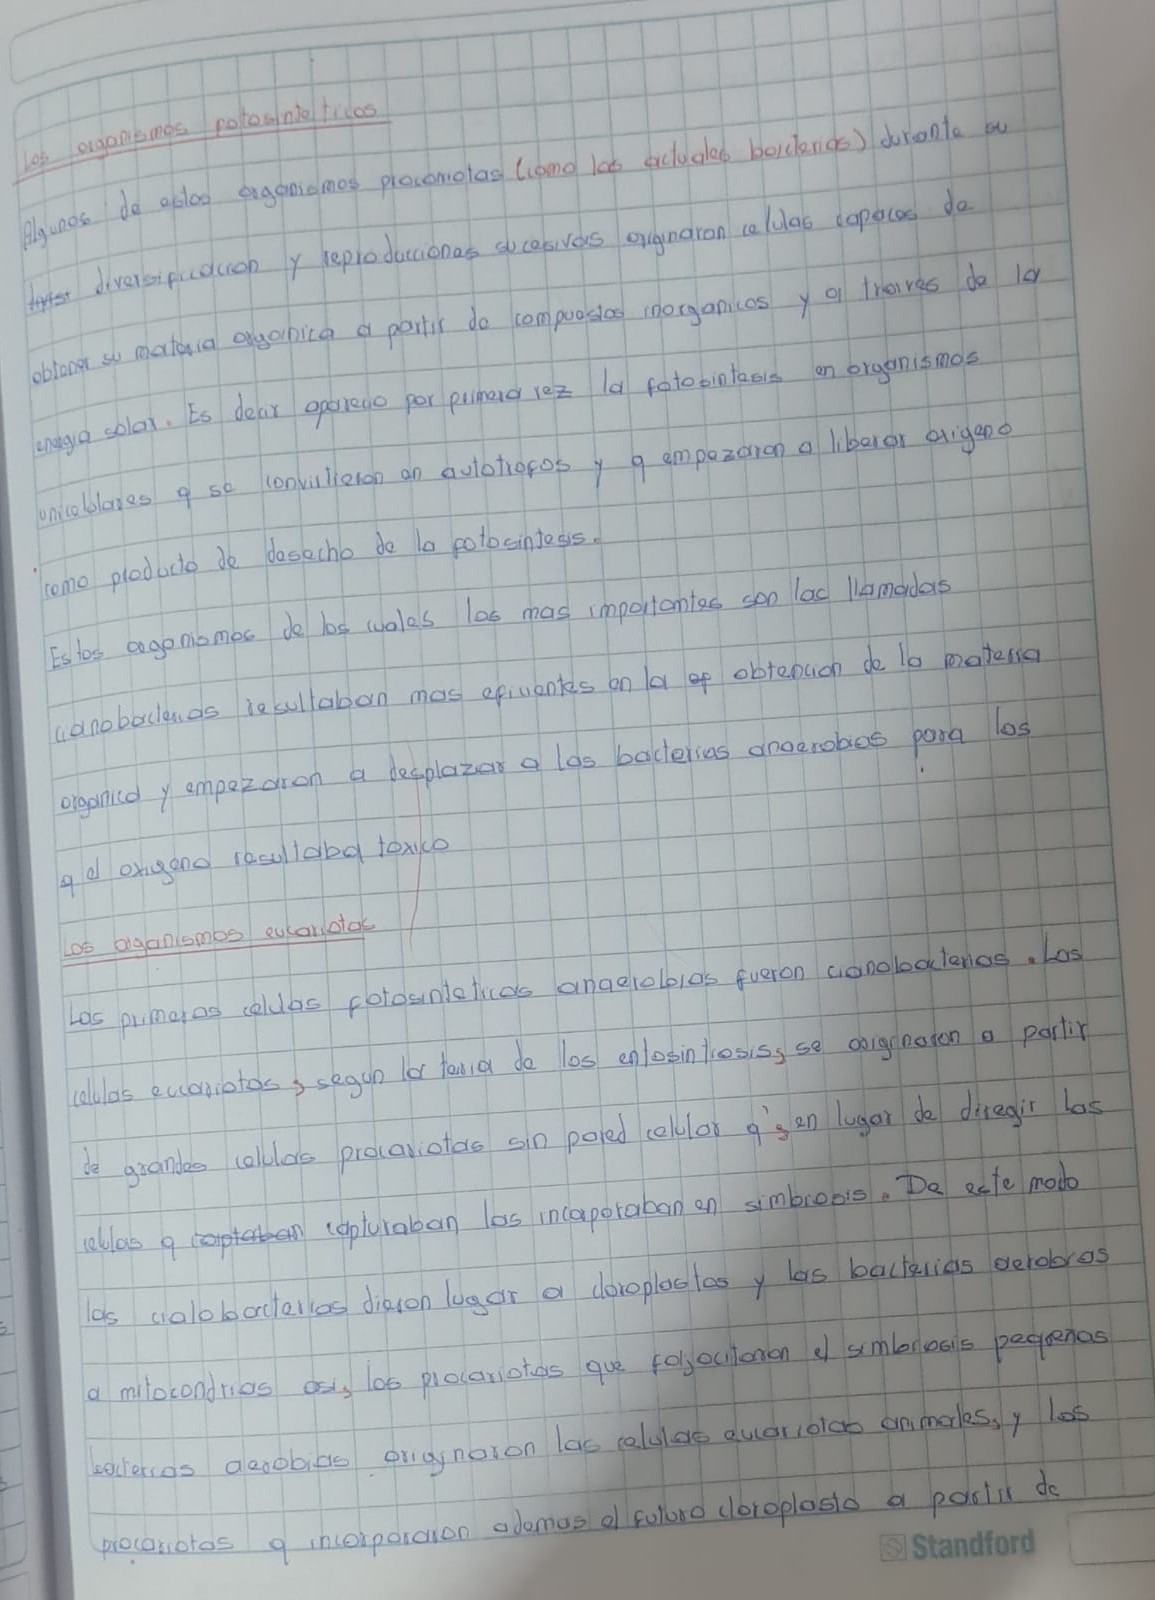 Los organismos fotosinteticos
Algunos de estos organismos procariotas (como las actuales bacterias) durante su
diversificacion y reproducciones sucesivas originaron celulas capaces de
obtener su materia organica a partir de compuestos inorganicos y a traves de la
energia solar. Es decir aparecio por primera vez la fotosintesis en organismos
unicelulares q se convirtieron en autotrofos y q empezaron a liberar oxigeno
como producto de desecho de la fotosintesis.
Estos organismos de los cuales las mas importantes son las llamadas
cianobacterias resultaban mas eficientes en la ef obtencion de la materia
organica y empezaron a desplazar a las bacterias anaerobias para los
q el oxigeno resultaba toxico
Los organismos eucariotas
Las primeras celulas fotosinteticas anaerobias fueron cianobacterias. Las
celulas eucariotas, segun la teoria de los entosintiosis, se originaron a partir
de grandes celulas procariotas sin pared celular q, en lugar de diregir las
celulas q capturaban las incorporaban en simbiosis. De este modo
las cialobacterias dieron lugar a cloroplastos y las bacterias aerobias
a mitocondrias asi, los procariotas que fagocitaron el simbiosis pequeñas
bacterias aerobias originaron las celulas eucariotas animales, y los
procariotas q incorporaron ademas el futuro cloroplasto a partir de
Standford